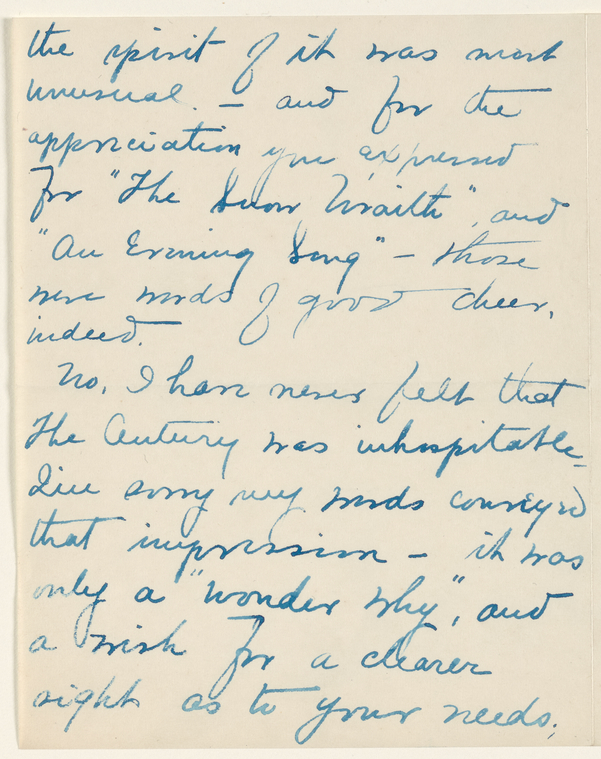 the spirit of it was most
unusual. — and for the
appreciation you expressed
for "The Snow Wraith", and
"An Evening Song" — those
were words of good cheer,
indeed.
No, I have never felt that
The Century was inhospitable_
I'm sorry my words conveyed
that impression — it was
only a "wonder why", and
a wish for a clearer
sight as to your needs;